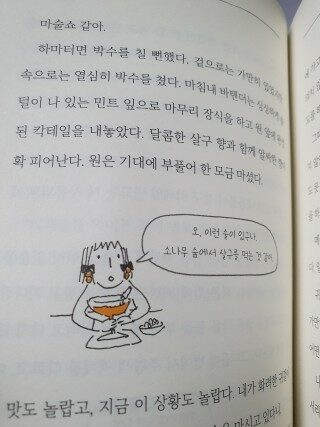 마술쇼 같아.
하마터면 박수를 칠 뻔했다. 겉으로는 가만히 있었지만
속으로는 열심히 박수를 쳤다. 마침내 바텐더는 싱싱하게
털이 나 있는 민트 잎으로 마무리 장식을 하고 원 앞에
된 칵테일을 내놓았다. 달콤한 살구 향과 함께 알싸한
확 피어난다. 원은 기대에 부풀어 한 모금 마셨다.
오, 이런 술이 있구나.
소나무 숲에서 살구를 먹는 것 같아.
맛도 놀랍고, 지금 이 상황도 놀랍다. 내가 화려한
마시고 있다니